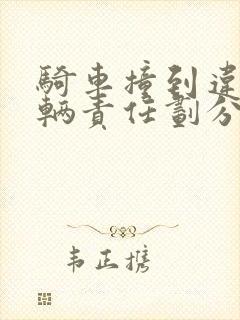 騎車撞到違
輛責任劃分
韦正携